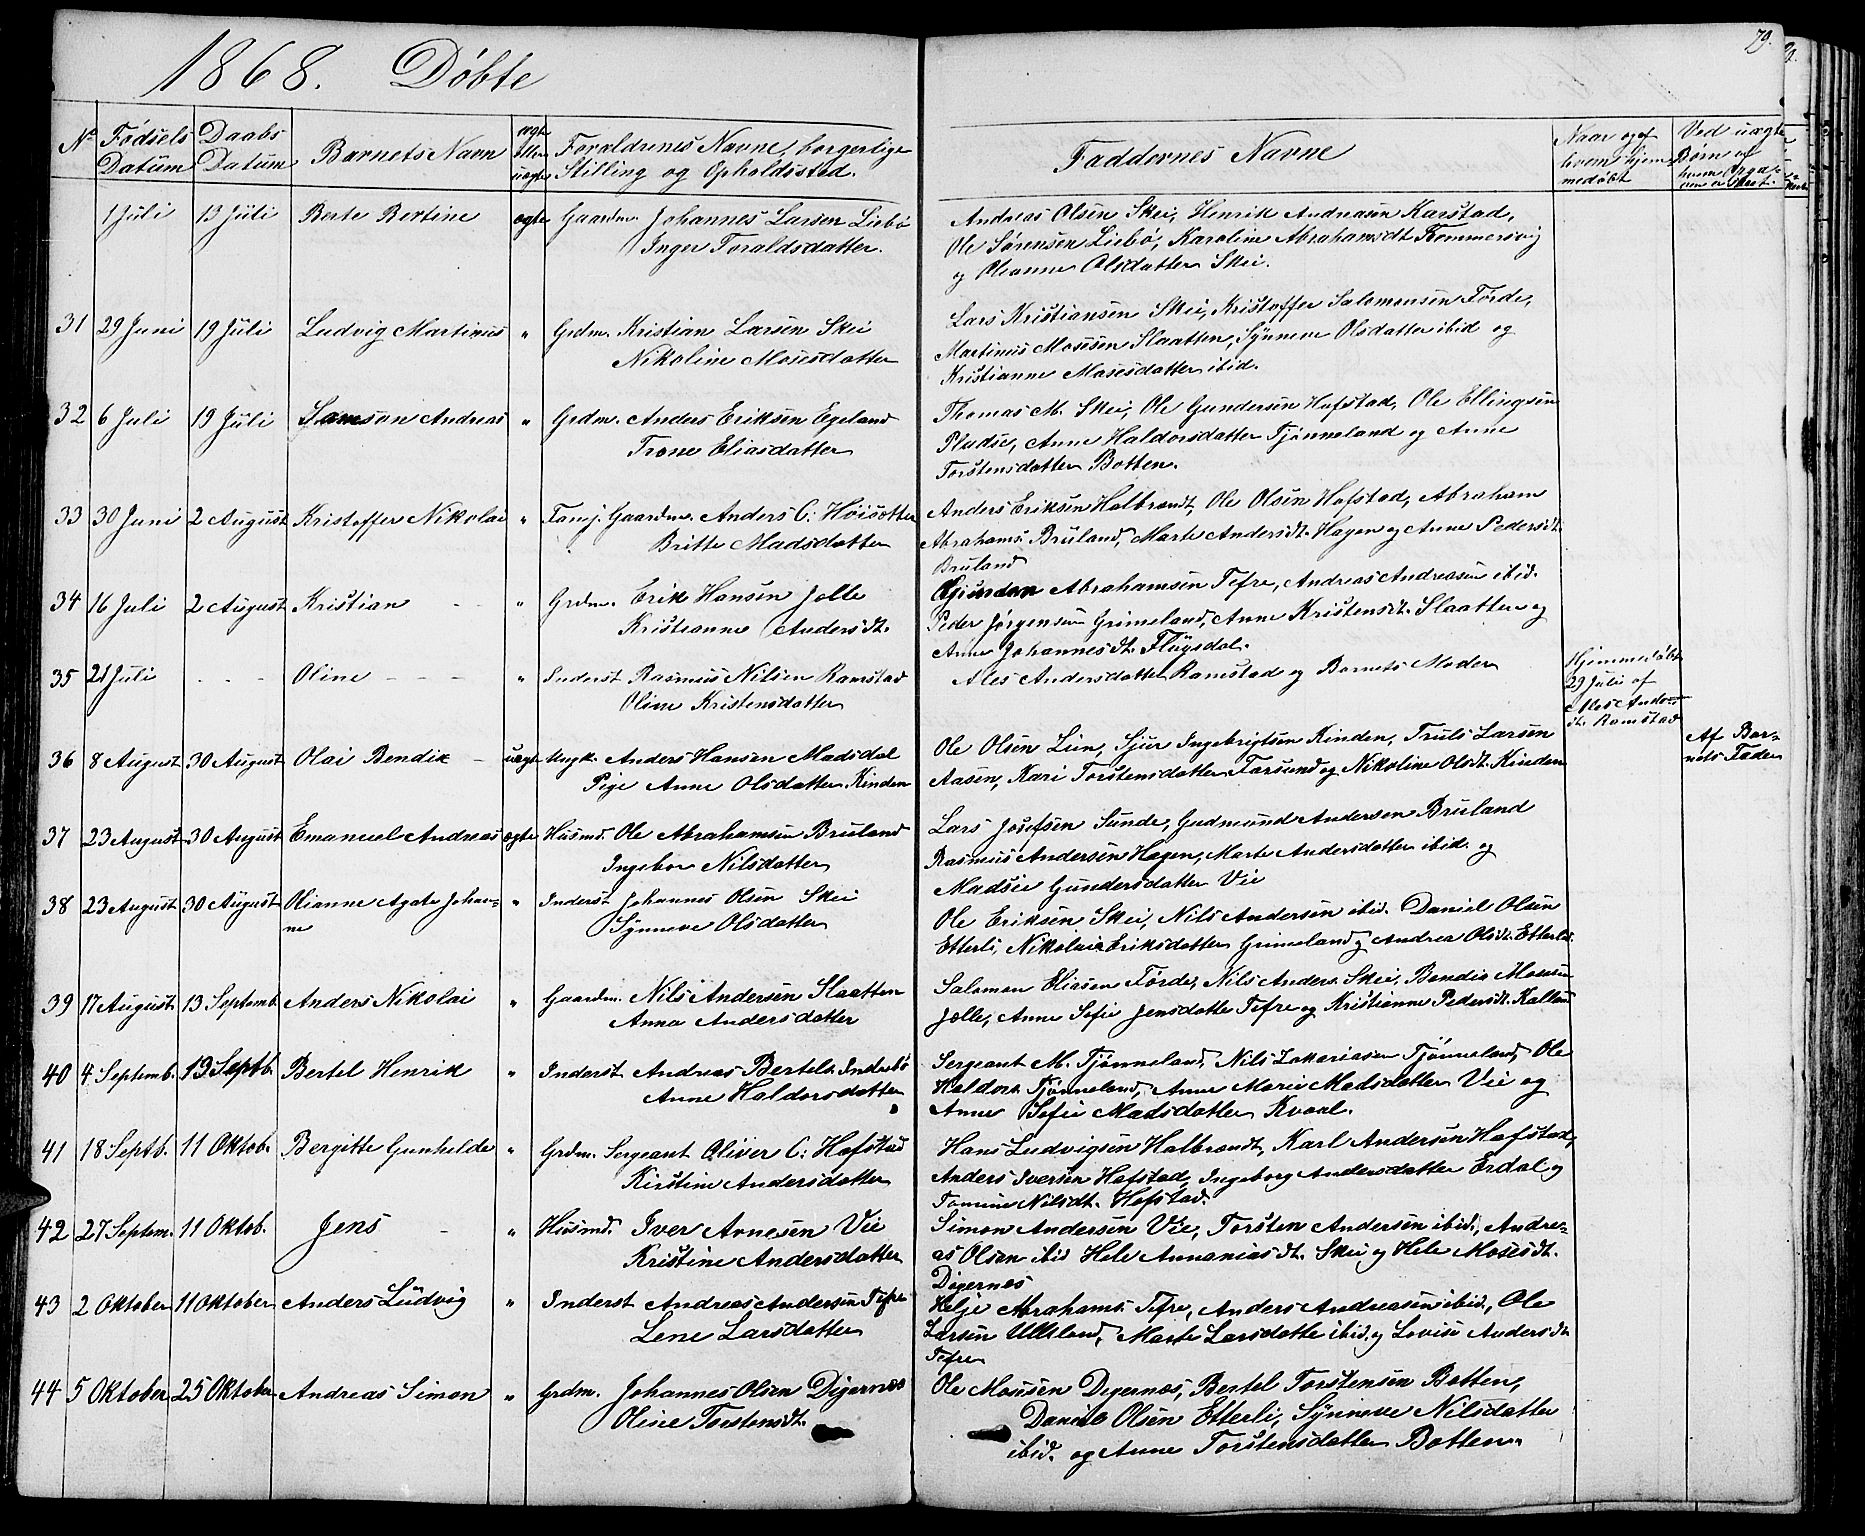 1868. Døbte
79.
No Fødsels Datum
Daabs Datum
Barnets Navn
ægte eller uægte
Forældrenes Navne, borgerlige
Stilling og Opholdssted.
Faddernes Navne
Naar og af
hvem hjem-
medøbt
Ved uægte
Børn af
hvem
1 Juli 19 Juli Berte Bertine ægte Gaardm. Johannes Larsen Liebø
Inger Toraldsdatter.
Andreas Olsen Skei, Henrik Andreasen Karstad,
Ole Sørensen Liebø, Karoline Abrahamsdt.
og Oleanne Olsdatter Skei.
31 29 Juni 19 Juli Ludvig Martinus " Grdm. Kristian Larsen Skei
Nikoline Mosesdatter
Lars Kristiansen Skei, Kristoffer Salomonsen Førde,
Martinus Mosesen Slaatten, Synneve Olsdatter ibid og
Kristianne Mosesdatter ibid.
32 6 Juli 19 Juli Samson Andreas " Grdm. Anders Eriksen Egeland
Trone Eliasdatter
Thomas M. Skei, Ole Gundersen Hafstad, Ole Ellingsen
Pladse, Anne Haldorsdatter Tjønneland og Anne
Torstensdatter Botten.
33 30 Juni 2 August Kristoffer Nikolai " Gaardm. Anders C: Høisætter
Britte Madsdatter
Anders Eriksen Halbrændt, Ole Olsen Hafstad, Abraham
Abrahams. Bruland, Marte Andersdt. Hagen og Anne Pedersdt.
Bruland
34 16 Juli 2 August Kristian - - " Grdm. Erik Hansen Jølle
Kristianne Andersdt.
Abrahamsen Tefre, Andreas Andreasen ibid.
Peder Jørgensen Grimeland, Anne Kristensdt. Slaatten og
Anne Johannesdt. Fløgsdal.
35 21 Juli - - - Oline - - - " Inderst Rasmus Nilsen Ramstad
Oline Kristensdatter
Ales Andersdatter Ramstad og Barnets Moder
Hjemmedøbt
29 Juli af
Ales Anders-
dt. Ramstad
36 8 August 30 August Olai Bendik - uægte Ungk. Anders Hansen Madsdal
Pige Anne Olsdatter Kinden
Ole Olsen Lien, Sjur Ingebrigtsen Kinden, Truls Larsen
Aasen, Kari Torstensdatter Farsund og Nikoline Olsdt. Kinden
Af Bar-
nets Fader
37 23 August 30 August Emanuel Andreas ægte Husmd. Ole Abrahamsen Bruland
Ingebor Nilsdatter
Lars Josefsen Sunde, Gudmund Andersen Bruland
Rasmus Andersen Hagen, Marte Andersdatter ibid. og
Madsie Gundersdatter Vie
38 23 August 30 August Olianne Agate Johan-
ne
" Inderst Johannes Olsen Skei
Synneve Olsdatter
Ole Eriksen Skei, Nils Andersen ibid. Daniel Olsen
Etterli, Nikolaia Eriksdatter Grimeland og Andrea Olsdt. Etterli.
39 17 August 13 Septemb. Anders Nikolai " Gaardm. Nils Andersen Slaatten
Anna Andersdatter
Salomon Eliasen Førde, Nils Anders. Skei, Bendix Mosesen
Jølle, Anne Sofie Jensdatter Tefre og Kristianne Pedersdt. Kalland
40 4 Septemb. 13 Septb. Bertel Henrik " Inderst Andreas Bertels. Indrebø
Anne Haldorsdatter
Sergeant M. Tjønneland, Nils Zakariasen Tjønneland, Ole
Haldors. Tjønneland, Anne Marie Madsdatter Vie og
Anne Sofie Madsdatter Kvaal.
41 18 Septb. 11 Oktob. Bergitte Gunhilde " Grdm. Sergeant Oliver C: Hafstad
Kirstine Andersdatter
Hans Ludvigsen Halbrændt, Karl Andersen Hafstad,
Anders Iversen Hafstad, Ingeborg Andersdatter Erdal og
Tomine Nilsdt. Hafstad.
42 27 Septem. 11 Oktob. Jens - " Husmd. Iver Arnesen Vie
Kristine Andersdatter
Simon Andersen Vie, Torsten Andersen ibid., Andre-
as Olsen ibid Hele Annaniasdt. Skei og Hele Mosesdt.
Digernes
43 2 Oktober 11 Oktober Anders Ludvig " Inderst Andreas Andersen Tefre
Lene Larsdatter
Helje Abrahams. Tefre, Anders Andreasen ibid., Ole
Larsen Ulltland, Marte Larsdatter ibid. og Lovise Andersdt.
Tefre
44 5 Oktober 25 Oktober Andreas Simon " Grdm. Johannes Olsen Digernæs
Oline Torstensdt.
Ole Mosesen Degernæs, Bertel Torstensen Botten,
Daniel Olsen Etterli, Synneve Nilsdatter
ibid. og Anne Torstensdatter Botten.